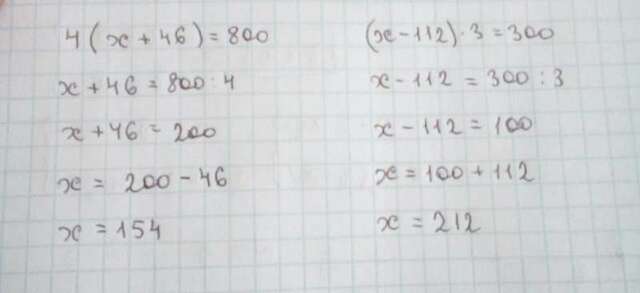 4(x+46)=800
x+46=800:4
x+46=200
x=200-46
x=154
(x-112)·3=300
x-112=300:3
x-112=100
x=100+112
x=212